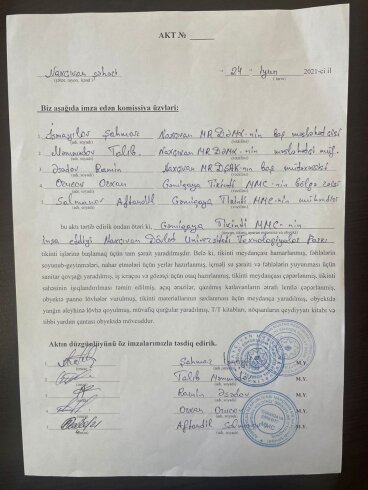 AKT №
Naxçıvan şəhəri "24" iyun 2021-ci il
(şəhər, rayon, kənd) (tarix)
Biz aşağıda imza edən komissiya üzvləri:
1. İsmayılov Şahmar Naxçıvan MR DƏMX-nin baş məsləhətçisi
(adı, soyadı) (vəzifəsi)
2. Məmmədov Talıb Naxçıvan MR DƏMX-nin məsləhətçi
(adı, soyadı) (vəzifəsi)
3. Əsədov Ramin Naxçıvan MR baş mütəxəssisi
(adı, soyadı) (vəzifəsi)
4. Orucov Orxan Gəmiqaya Tikinti MMC-nin bölgə
(adı, soyadı) (vəzifəsi)
5. Salmanov Aftandil Gəmiqaya MMC-nin mühəndisi
(adı, soyadı) (vəzifəsi)
bu aktı tərtib edirik ondan ötəri ki, Gəmiqaya Tikinti MMC-nin
inşa etdiyi Naxçıvan Dövlət Universiteti Texnologiyalar Parkı
tikinti işlərinə başlamaq üçün tam şərait yaradılmışdır. Belə ki, tikinti meydançası hamarlanmış, fəhlələrin
soyunub-geyinmələri, nahar etmələri üçün yerlər hazırlanmış, içməli su şəraiti və fəhlələrin yuyunması üçün
sanitar qovşağı yaradılmış, iş icraçısı və gözətçi üçün otaq hazırlanmış, tikinti meydançası çəpərlənmiş, tikinti
sahəsinin işıqlandırılması təmin edilmiş, açıq anuzlar, qazılmış katlavanların ətrafı lentlə çəpərlənmiş,
obyektə panno lövhələr vurulmuş, tikinti materiallarının saxlanması üçün meydança yaradılmış, obyektdə
yanğın əleyhinə lövhə qoyulmuş, müvafiq qurğular yaradılmış, T/T kitabları, nöqsanların qeydiyyatı kitabı və
tibbi yardım çantası obyektdə mövcuddur.
Aktın düzgünlüyünü öz imzalarımızla təsdiq edirik.
1. Şahmar M.Y.
(imza) (adı, soyadı)
2. Talıb Məmmədov
(adı, soyadı)
3. Ramin Əsədov
(adı, soyadı)
4. Orxan Orucov M.Y.
(adı, soyadı)
5. Aftandil Salmanov M.Y.
(imza) (adı, soyadı)